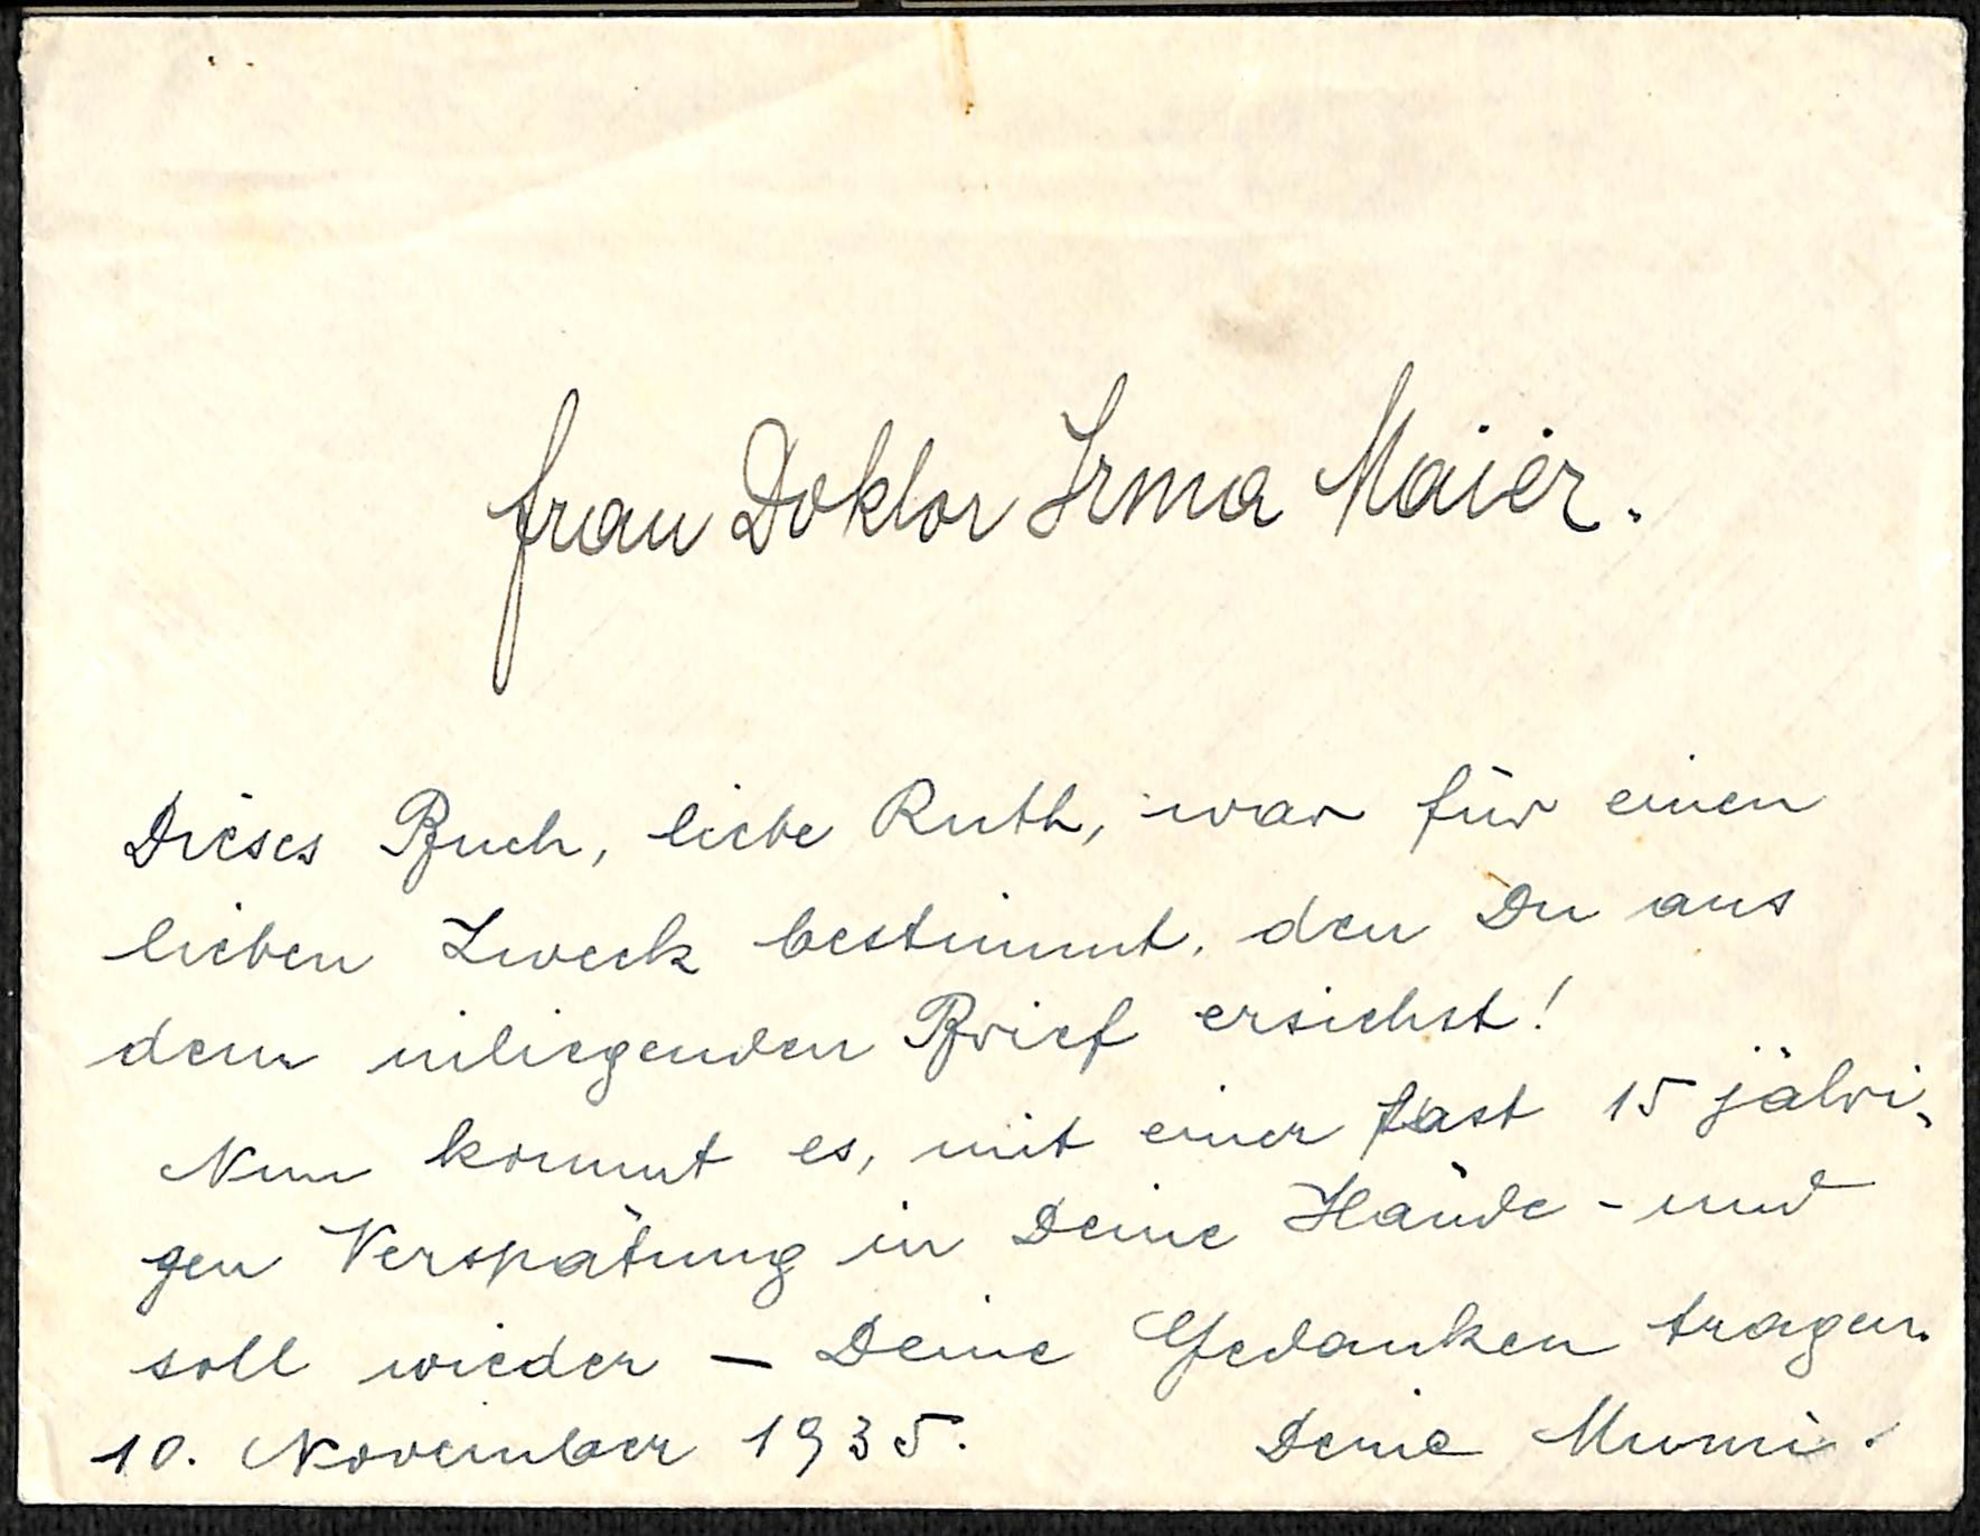 Frau Doktor Irma Maier.
Dieses Buch, liebe Ruth, war für einen
lieben Zweck bestimmt, den Du aus
dem inliegenden Brief ersiehst!
Nun kommt es, mit einer fast 15 jähri-
gen Verspätung in Deine Hände - und
soll wieder — Deine Gedanken tragen.
10. November 1935. Deine Mumi.